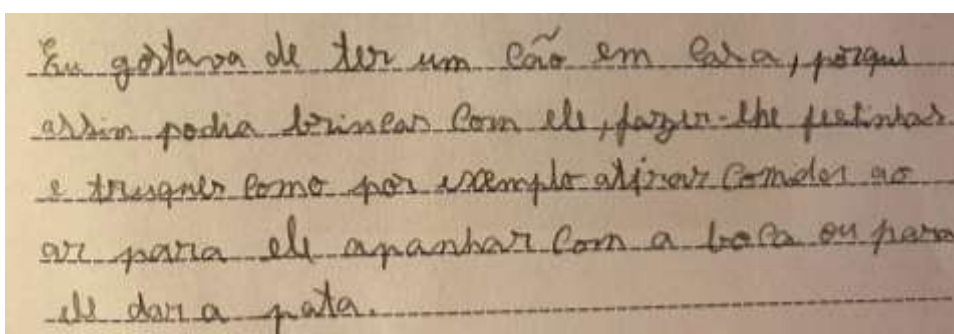 Eu gostava de ter um cão em casa, porque
assim podia brincar com ele, fazer-lhe festinhas
e truques como por exemplo atirar comida ao
ar para ele apanhar com a boca ou para
ele dar a pata.